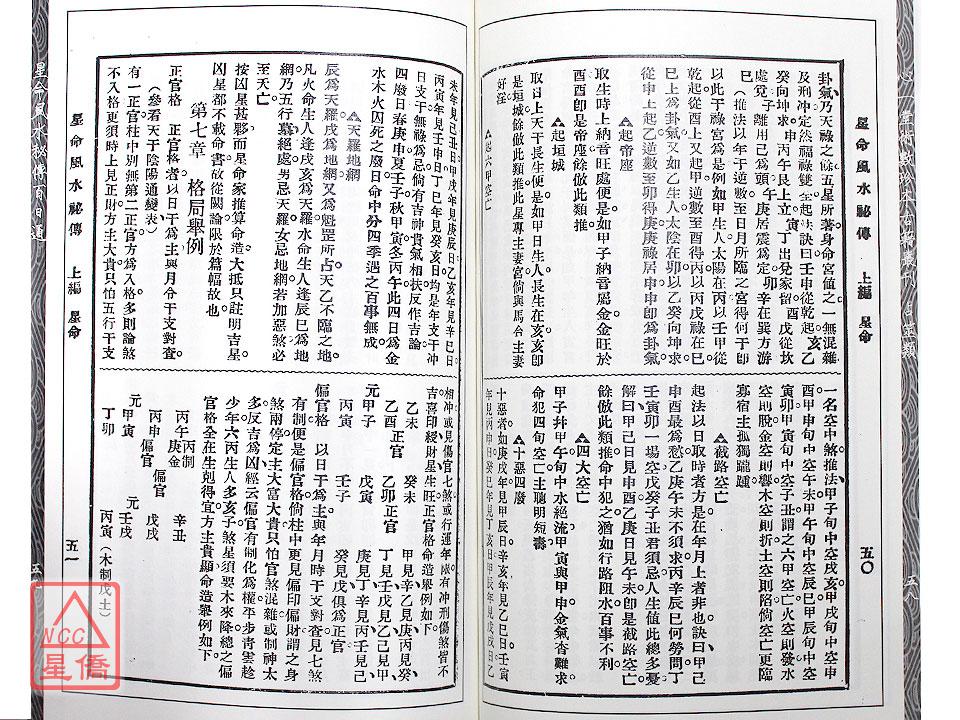 星命風水祕傳　上編　星命
五〇
卦氣乃天祿之餘五星所著身命宮值之一無混雜
及刑冲定然福祿雙全起訣曰壬申從乾起乙亥
癸向坤求申丙午艮上立寅丁出兌家留酉戊從坎
處覓子離用己爲頭午庚居震爲定卯辛在巽方游
巳（推法以年于從祿起逆數至日月所臨之宮得何于卽
以此于將祿宮爲是例如甲生人太陽在甲以壬甲從
乾起從酉上又起甲逆數至酉得丙以丙戊祿在巳
巳上爲卦氣又如乙生人太陰在卯以乙癸向坤求
從申上起乙逆數至卯得庚庚祿居申申卽爲卦氣
△起帝座
取生時上納音旺處便是如甲子納音屬金金旺於
酉酉卽是帝座餘倣此類推
△起垣城
取以上天干長生便是如甲日生人長生在亥亥卽
是垣城餘倣此類推此星專主妻宮倘與馬合主妻
好淫
△起六甲空亡
一名空中煞推法甲子旬中空戌亥甲戌旬中空申
酉甲申旬中空午未甲午旬中空辰巳甲辰旬中空
寅卯甲寅旬中空子丑謂之六甲空亡火空則發水
空則脫金空則響木空則折土空則陷倘空亡更臨
寡宿主孤獨龍鍾
△截路空亡
起法以日取時者方是在年月上者非也訣曰甲己
申酉最爲愁乙庚午未不須求丙辛辰巳何勞問丁
壬寅卯一場空戊癸子丑君須忌人生值此總多憂
解曰甲己日見申酉乙庚日見午未卽是截路空亡
餘倣此類推命中犯之猶如行路阻水百事不利
△四大空亡
甲子幷甲午旬中水絕流甲寅與甲申金氣杳難求
命犯四旬空亡主聰明短壽
△十惡四廢
十惡者如庚戌年見甲辰日辛亥年見乙巳日壬寅
年見丙申日癸巳年見丁亥日甲辰年見戊戌日乙
未年見己丑日甲戌年見庚辰日乙亥年見辛巳日
丙寅年見壬申日丁巳年見癸亥日均是年支干冲
日支干無祿爲忌倘有吉神貴氣相扶反作吉論
四廢日春庚申夏壬子秋甲寅冬丙午此四日爲金
水木火囚死之廢日命中分四季遇之百事無成
△天羅地網
辰爲天羅戌爲地網又爲魁罡所占天乙不臨之地
凡火命生人逢戌亥爲天羅水命生人逢辰巳爲地
網乃五行墓絕處男忌天羅女忌地網若加惡煞必
至天亡
按凶星甚夥而星命家推算命造大抵只註明吉星
凶星都不載命書故從闕論限於篇幅故也
第七章　格局舉例
正官格　正官格者以日干爲主與月令干支對查
（參看天于陰陽通變表）
有一正官柱中別無第二正官方爲入格多則論煞
不入格更須時上見正財方主大貴只怕五行干支
相冲或見傷官七煞或行運年限有冲刑傷煞皆不
吉喜印綬財星生旺正官格命造舉例如下
乙未　癸未　甲見辛乙見庚丙見癸
乙酉正官　乙卯正官　丁見壬戊見乙己見甲
元甲子　戊寅　庚見丁辛見丙壬見己
丙寅　壬子　癸見戊俱爲正官
偏官格　以日于爲主與年月時干支對查見七煞
有制便是偏官格倘柱中更見偏印偏財謂之身
煞兩停定主大富大貴只怕官煞混雜或制神太
多反吉爲凶經云偏官有制化爲權平步青雲趁
少年六丙生人多亥子煞星須要木來降總之偏
官格全在生剋得宜方主貴顯命造舉例如下
丙制
丙午庚金　辛丑
丙申偏官　偏官戊戌
元甲寅　元壬戌
丁卯　丙寅（木制戊土）
星命風水祕傳　上編　星命
五一
NCC
星僑